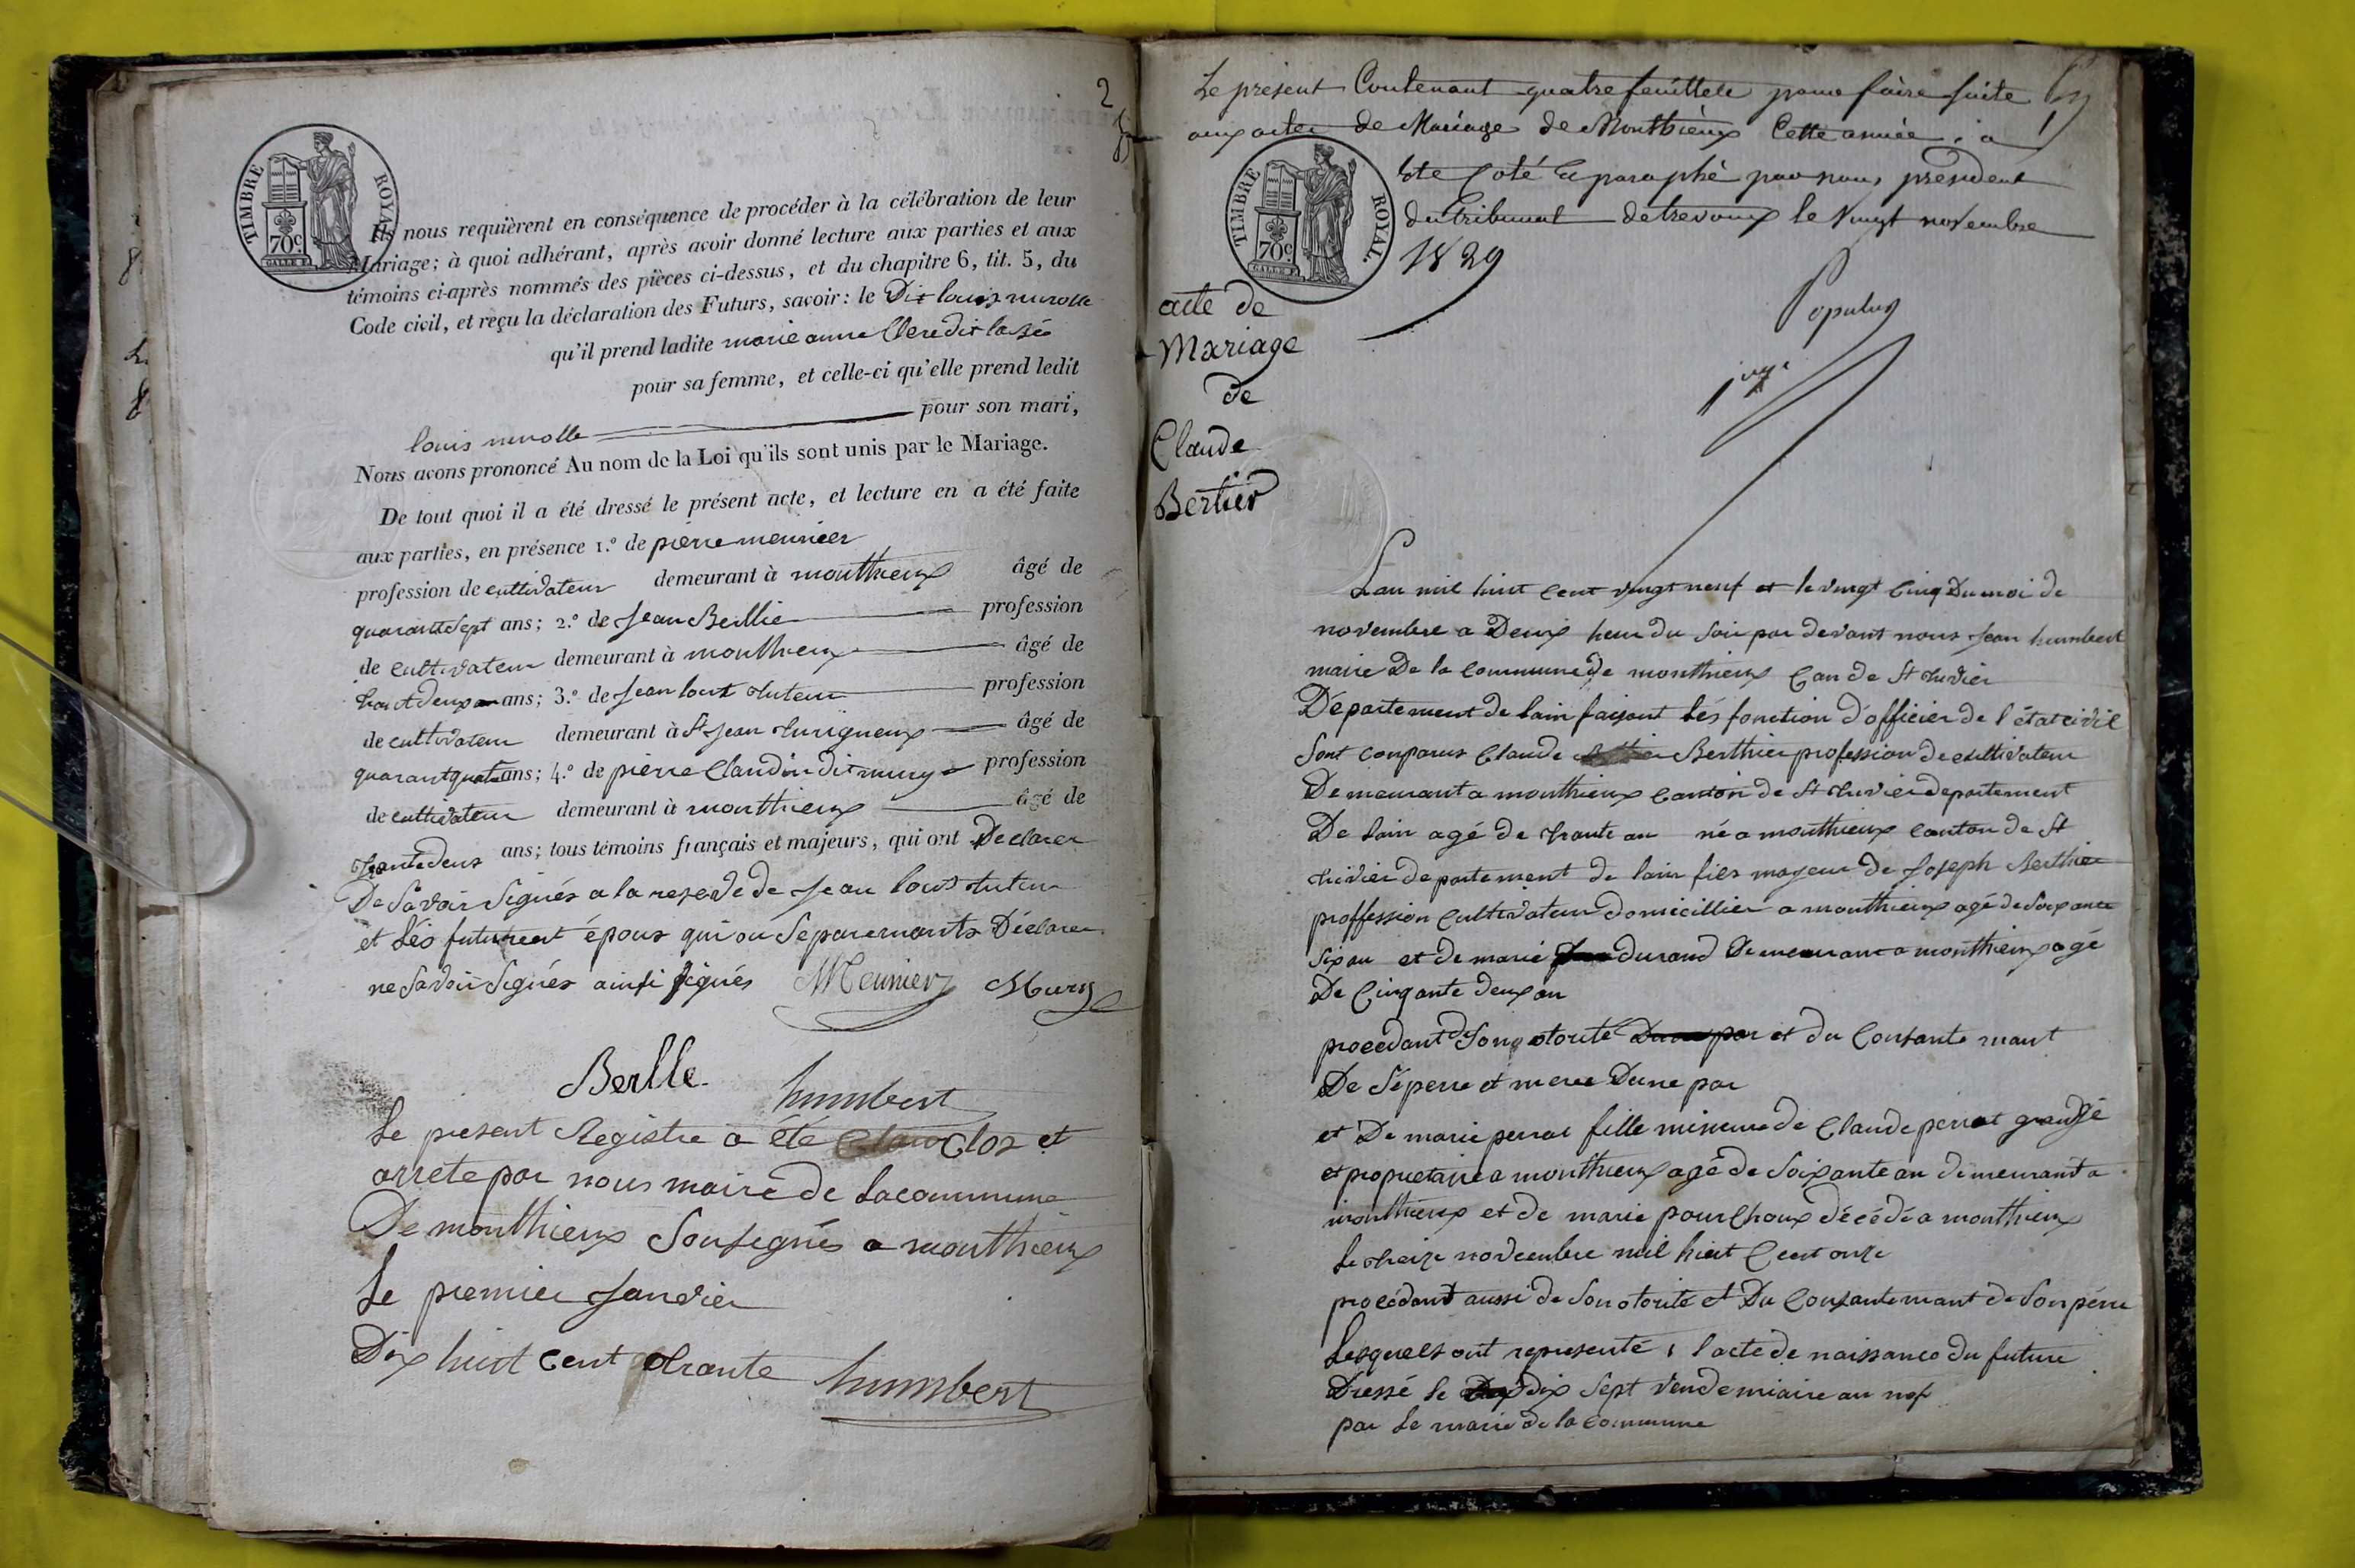 2
TIMBRE ROYAL
70c
Ils nous requièrent en conséquence de procéder à la célébration de leur
Mariage; à quoi adhérant, après avoir donné lecture aux parties et aux
témoins ci-après nommés des pièces ci-dessus, et du chapitre 6, tit. 5, du
Code civil, et reçu la déclaration des Futurs, savoir: le Dit louis
qu'il prend ladite marie anne
pour sa femme, et celle-ci qu'elle prend ledit
louis pour son mari,
Nous avons prononcé Au nom de la Loi qu'ils sont unis par le Mariage.
De tout quoi il a été dressé le présent acte, et lecture en a été faite
aux parties, en présence 1.º de pierre meunier
profession de cultivateur demeurant à monthieux âgé de
quarantesept ans; 2.º de Jean Berllie profession
de cultivateur demeurant à monthieux âgé de
trantdeux ans; 3.º de Jean louis profession
de cultivateur demeurant à St Jean turigneux âgé de
quarantquatre ans; 4.º de pierre Claudin dit mury profession
de cultivateur demeurant à monthieux âgé de
trantedeux ans; tous témoins français et majeurs, qui ont Declarer
De Savoir Signés a la reserve de Jean louis
et Lés futur époux qui ont Séparemants Déclarer
ne Savoir Signés ainsi signés Meunier Mury
Berlle humbert
Le present Registre a été Clos et
arrete par nous maire de La commune
De monthieux Sousignés a monthieux
Le premier Janvier
Dix huit cent trante humbert
Le présent Contenant quatre feuillets pour faire suite
aux actes de Mariage de Monthieux Cette année, a
TIMBRE ROYAL
70c
été Coté & paraphé par nous président
du tribunal de trevoux le Vingt novembre
1829
Populus
acte de
Mariage
de
Claude
Bertier
L'an mil huit Cent vingt neuf et le vingt Cinq Du moi de
novembre a Deux heur du Soir par devant nous Jean humbert
maire De la Commune de monthieux Can de St trivier
Département de lain faisant Lés fonction d'officier de l'état civil
Sont comparus Claude Berthier profession de cultivateur
Demeurant a monthieux Canton de St trivier departement
De Lain agé de trante an né a monthieux canton de St
trivier departement de lain fils majeur de Joseph Berthier
proffession cultivateur domicillier a monthieux agé de Soixante
Six an et de marie durand Demeurant a monthieux agé
De Cinqante deux an
procedant de Son otorité et du Consantemant
De Sé perre et mere Dune par
et De marie perrat fille mineure de Claude perrat
et proprietaire a monthieux agé de Soixante an demeurant a
monthieux et de marie pourchoux décédé a monthieux
Le treize novembre mil huit Cent onze
procédant aussi de Son otorité et Du Consantemant de Son pérre
Lesquels ont representé 1 l'acte de naissance du future
Dressé Le dix Sept vendemiaire an nef
par Le maire de la Commune